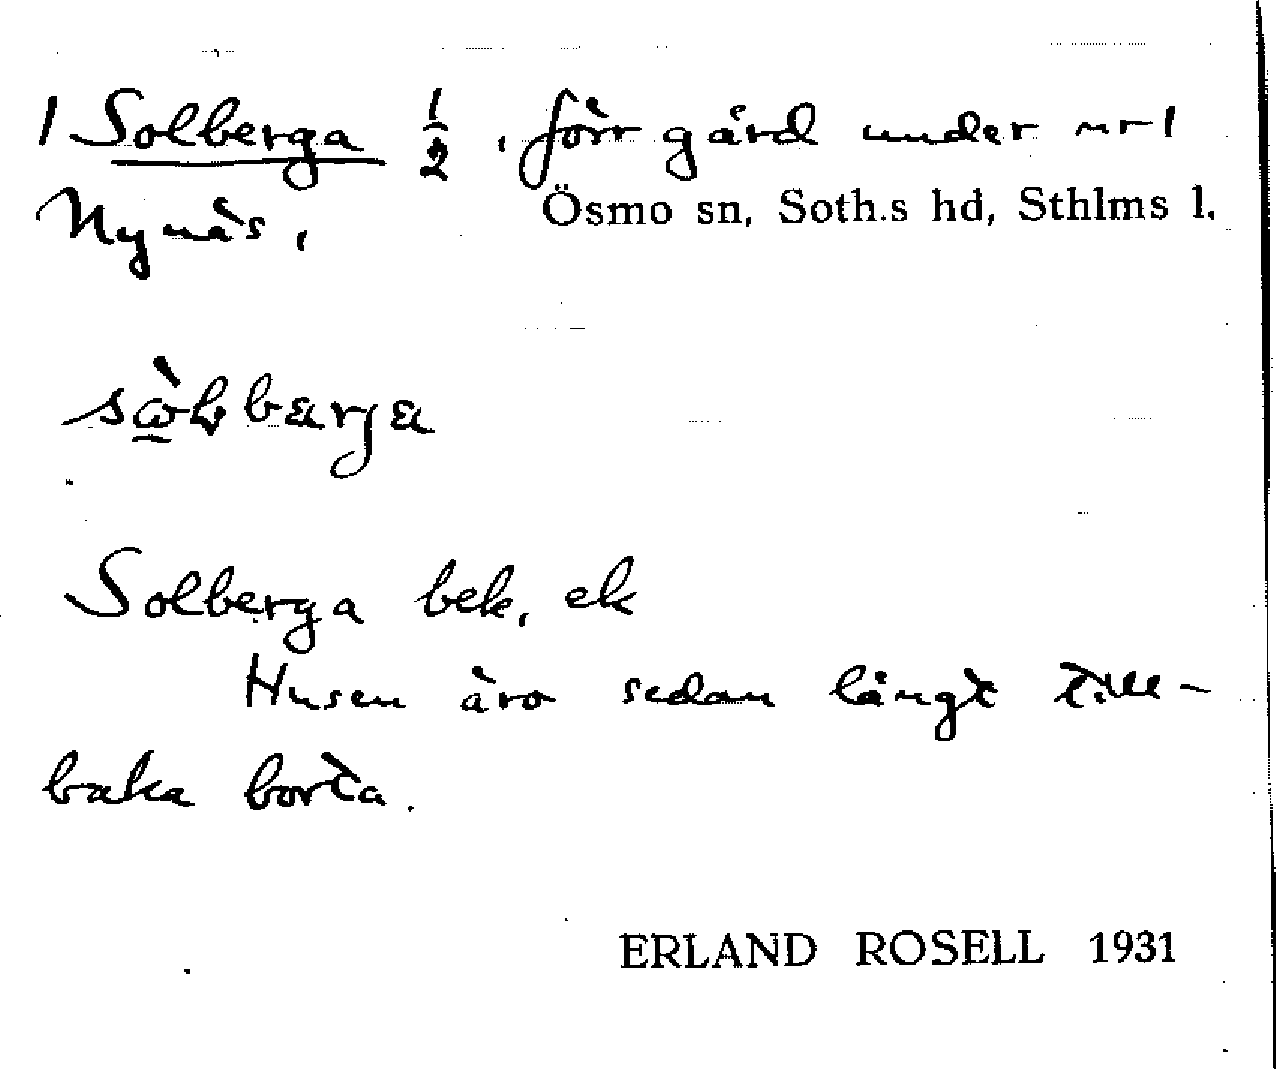 1 Solberga 1/2, förr gård under nr 1
Nynäs,
Ösmo sn, Soth.s hd, Sthlms l.
Solberga bek, ek
Husen äro sedan långt till-
baka borta.
ERLAND ROSELL 1931